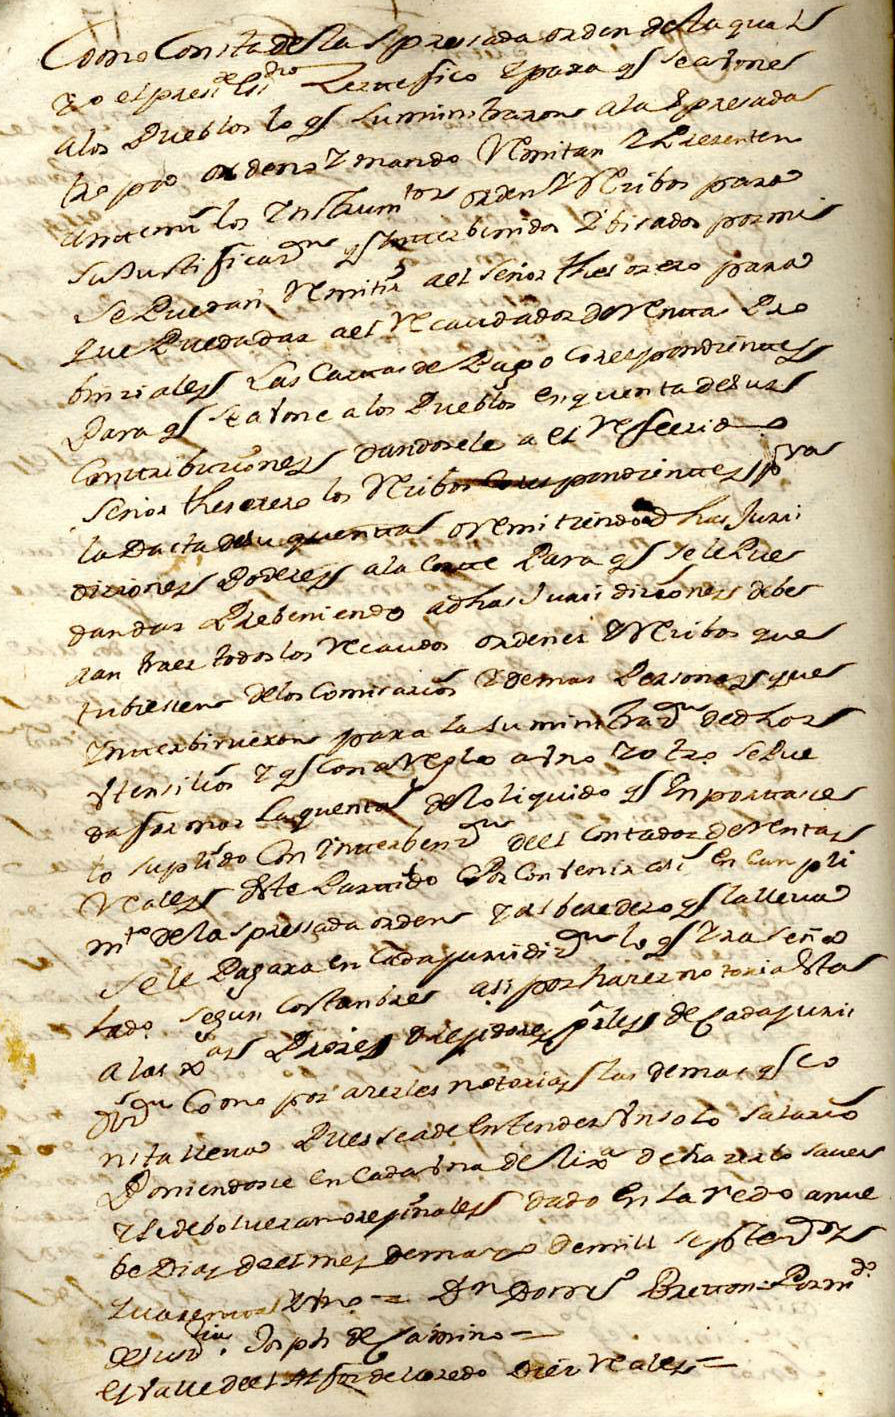 Como Consta de la espresada orden de la qual
yo el presite essno Zertefico Y para qe se abone
a los Pueblos lo qe suministraron a la Espresada
tropa ordeno Y mando Remitan Y Presenten
ante mi los Ynstrumtos orden Y Reribos para
su Justificazon qe Ynterbenidos Y bisados por mi
se Puedan Remitir a el señor thesorero para
que Pueda dar a el Recaudador de Renta Pro
binziales Las Cartas de Pago Correspondientes
Para qe se abone a los Pueblos en quenta de sus
Contribuziones dandosele a el Refferido
señor thesorero los Rezibos Correspondientes pra
la Data de su quentas o Remitiendo dhas Juri
diziones Poderes a la Corte Para qe se le Pue
dan dar Prebeniendo a dhas Juridiziones debe
ran traer todos los Recaudos ordenes Y Rezibos que
tubiesen de los Comisarios Y demas Personas que
Ynterbinieron para la suministrazon de dhos
Utensilios Y qe con areglo a Uno Y otro se Pue
da formar la quenta de lo liquido qe Ynportase
lo suplido Con Ynterbenzon de el Contador de Rentas
Reales de este Partido Por Conbenir asi en Cumpli
mto de la espressada orden Y al beredero qe la lleva
se le Pagara en Cada Juridizon lo qe Yra señ
lado segun Costumbre asi por hazer notoria esta
a las Prores o rejidores prales de Cada Juri
dizon Como por azerles notorias las demas qe co
nsta lleva Pues se a de entender Un solo salario
Poniendose en Cada Una de dilixa de hazerlo saver
Y se debolueran orejinales dado en Laredo a nue
be Dias de el mes de marzo de mill septezos
quarenta Y Uno = Dn Domgo Bretton = Por mdo
de su sria Joseph de Camino =
el Valle de el Alfoz de Loredo Diez Reales =